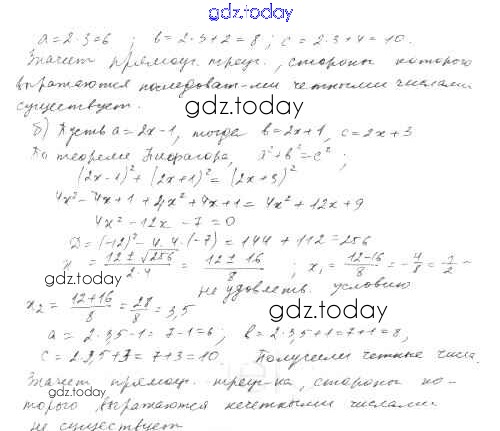 gdz.today
a = 2·3 = 6 ; b = 2·3+2 = 8 ; c = 2·3+4 = 10.
Значит прямоуг. треуг., стороны которого
выражаются последоват-ми четными числами
существует.
gdz.today
б) Пусть a = 2x-1, тогда b = 2x+1, c = 2x+3
По теореме Пифагора, a²+b²=c² ;
gdz.today
(2x-1)² + (2x+1)² = (2x+3)²
4x²-4x+1+4x²+4x+1 = 4x²+12x+9
4x²-12x-7=0
D = (-12)² - 4·4·(-7) = 144 + 112 = 256
x = 12±√256 / 2·4 = 12±16 / 8 ; x₁ = 12-16 / 8 = -4/8 = 1/2 -
gdz.today
не удовлетв. условию
x₂ = 12+16 / 8 = 28/8 = 3,5
gdz.today
a = 2·3,5-1 = 7-1 = 6 ; b = 2·3,5+1 = 7+1 = 8,
c = 2·3,5+3 = 7+3 = 10 Получили четные числа.
Значит прямоуг. треуг-ка, стороны ко-
gdz.today
торого выражаются нечетными числами
не существует